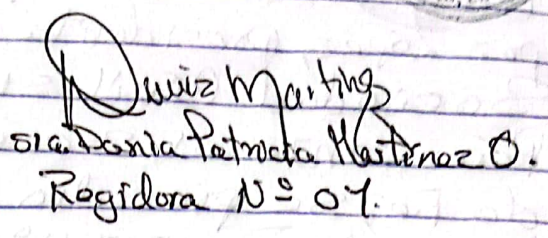 Martinez
Sra. Donia Patricia Martinez O.
Regidora Nº 07.